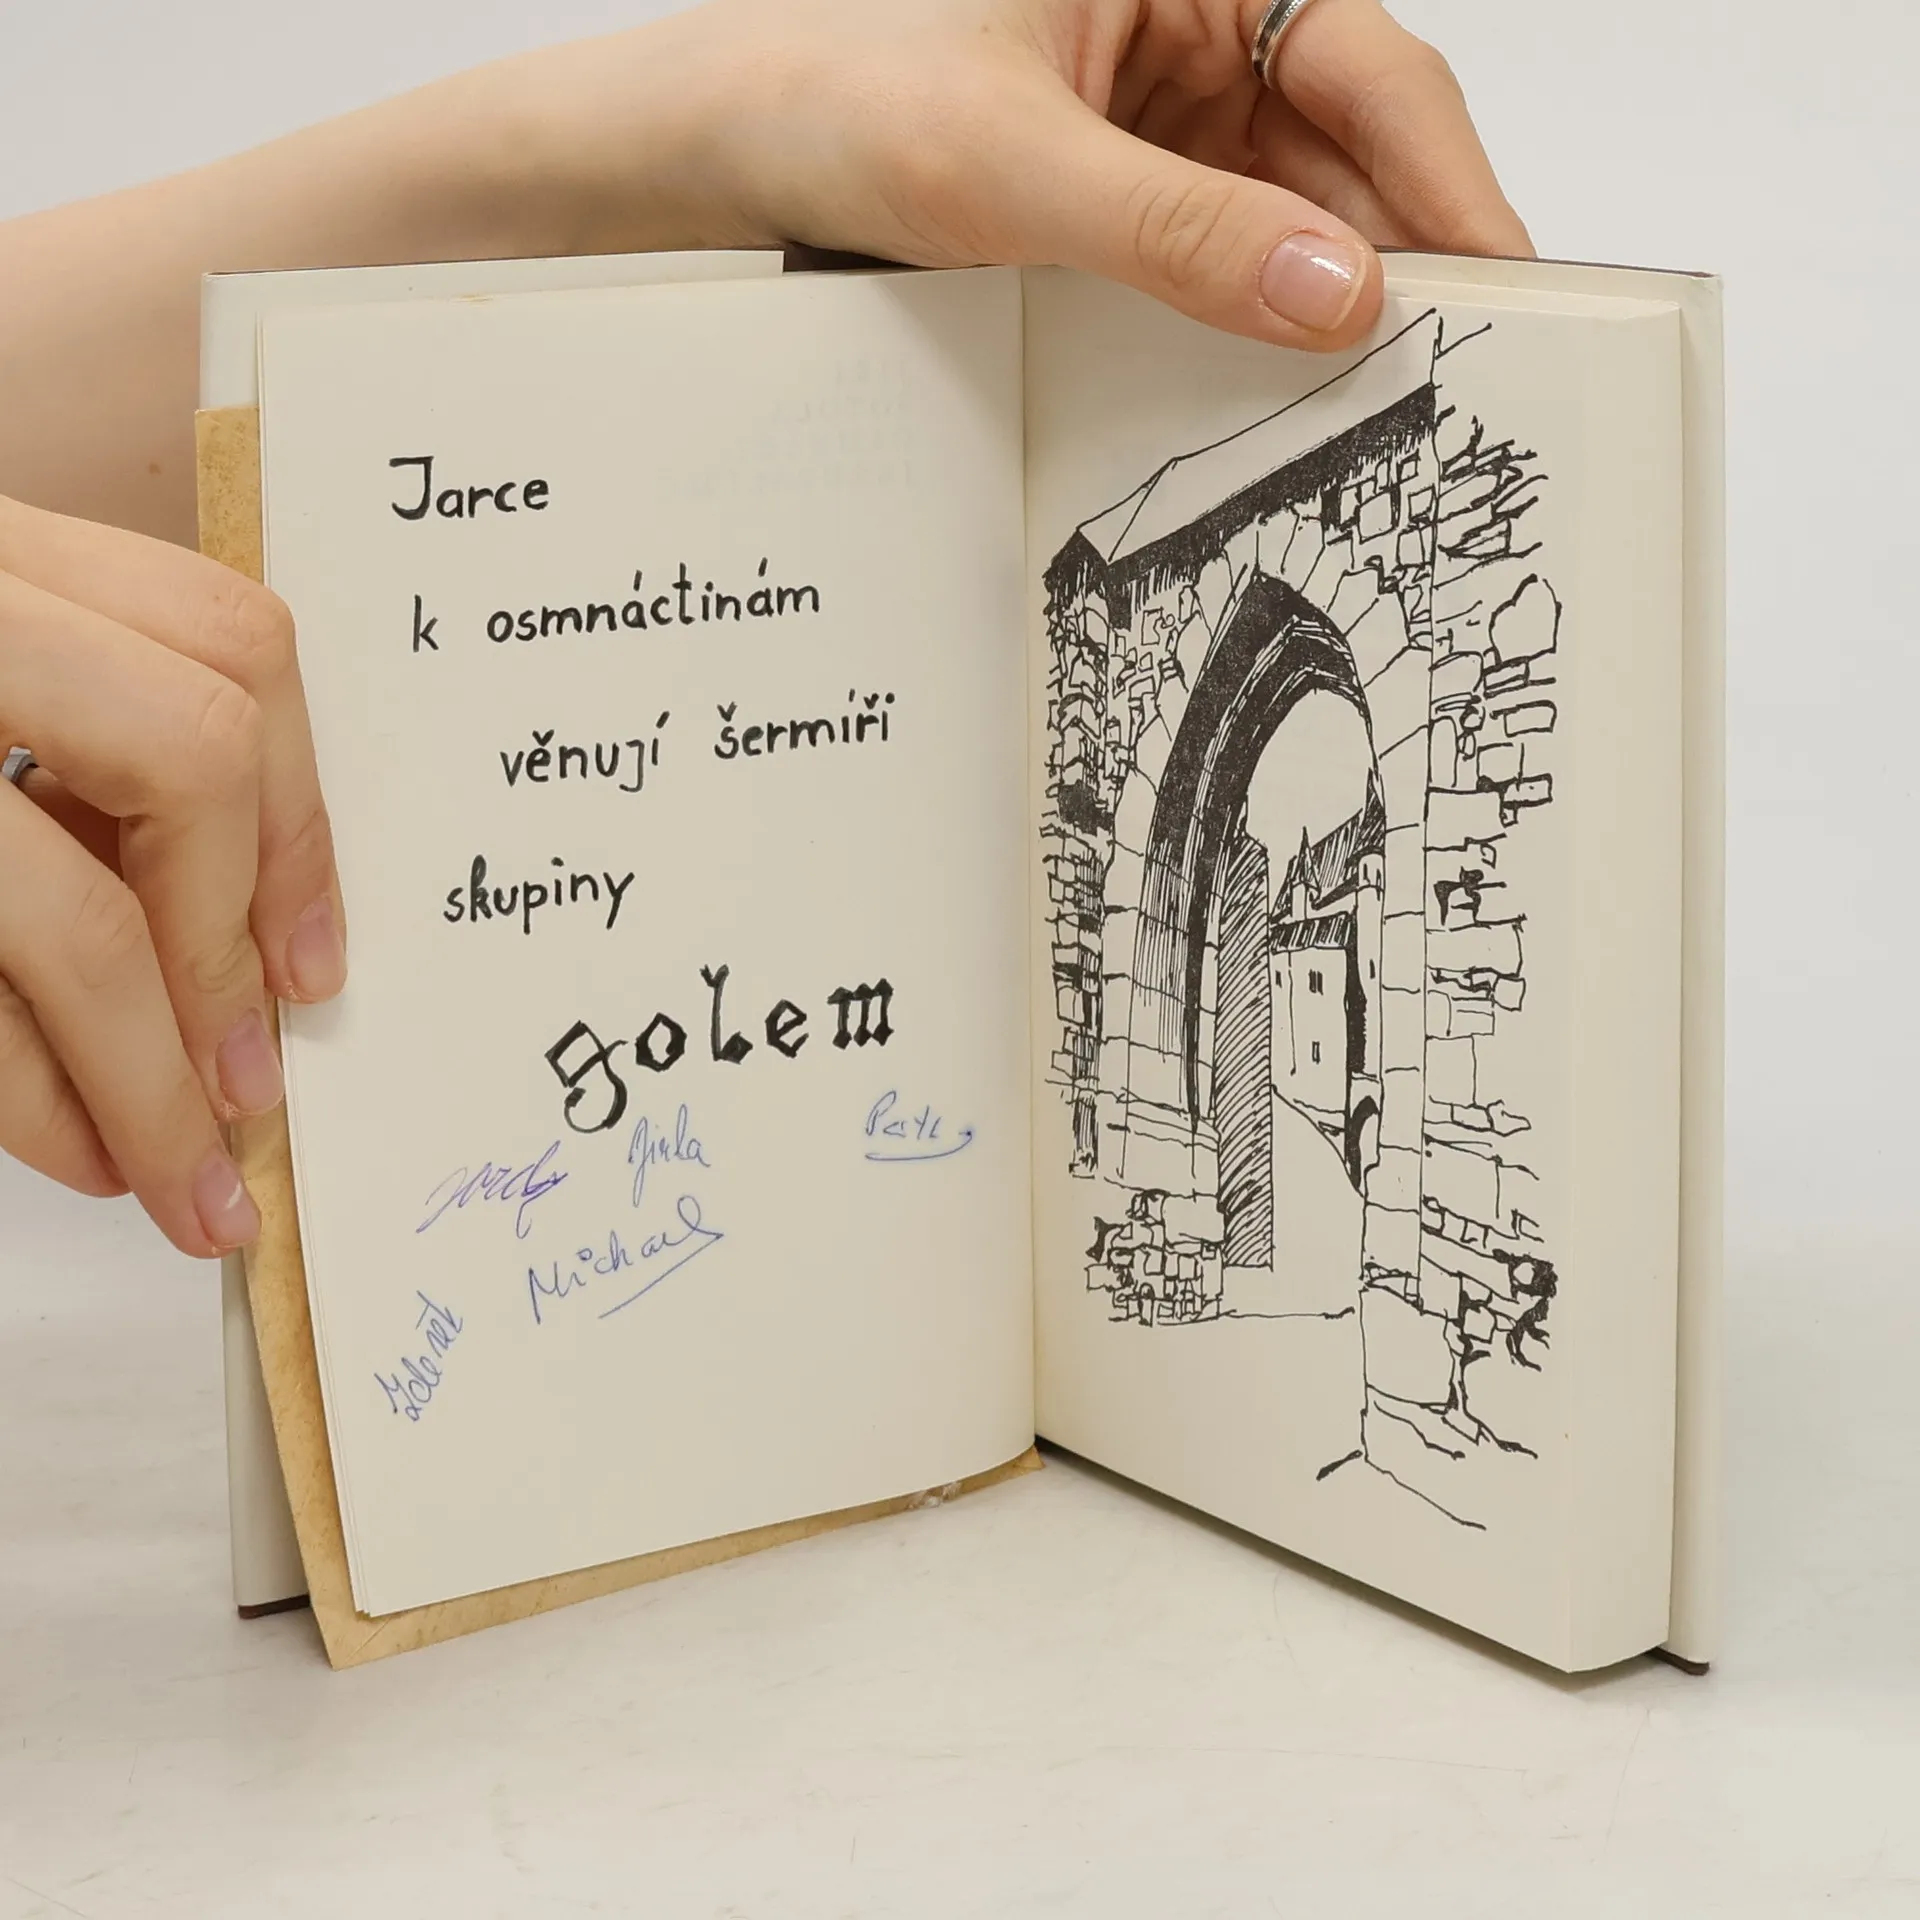 Jarce
k osmnáctinám
věnují šermíři
skupiny
golem
Jirka
Michael
Zdeněk